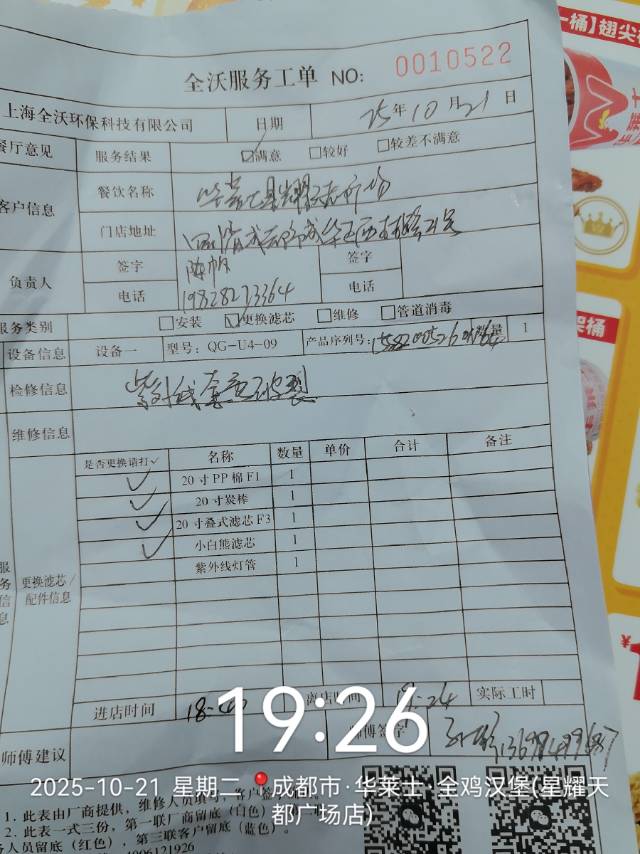 一桶】翅尖
全沃服务工单 NO: 0010522
上海全沃环保科技有限公司 日期 25年10月21日
餐厅意见 服务结果 ☑满意 □较好 □较差不满意
客户信息 餐饮名称 华莱士星耀天都广场店
门店地址
负责人 签字 陈帅 签字
电话 19828273364 电话
服务类别 □安装 ☑更换滤芯 □维修 □管道消毒
设备信息 设备一 型号: QG-U4-09 产品序列号: 数量 1
检修信息 紫外线套管破裂
维修信息
是否更换请打✓ 名称 数量 单价 合计 备注
✓ 20寸PP棉F1 1
✓ 20寸炭棒 1
✓ 20寸叠式滤芯F3 1
✓ 小白熊滤芯 1
紫外线灯管 1
服务信息 更换滤芯/配件信息
进店时间 离店时间 19:24 实际工时
师傅建议 师傅签字
19:26
2025-10-21 星期二 成都市·华莱士·全鸡汉堡(星耀天都广场店)
1. 此表由厂商提供，维修人员填写，客户签
2. 此表一式三份，第一联厂商留底（白色）
人员留底（红色），第三联客户留底（蓝色）。
4006121926